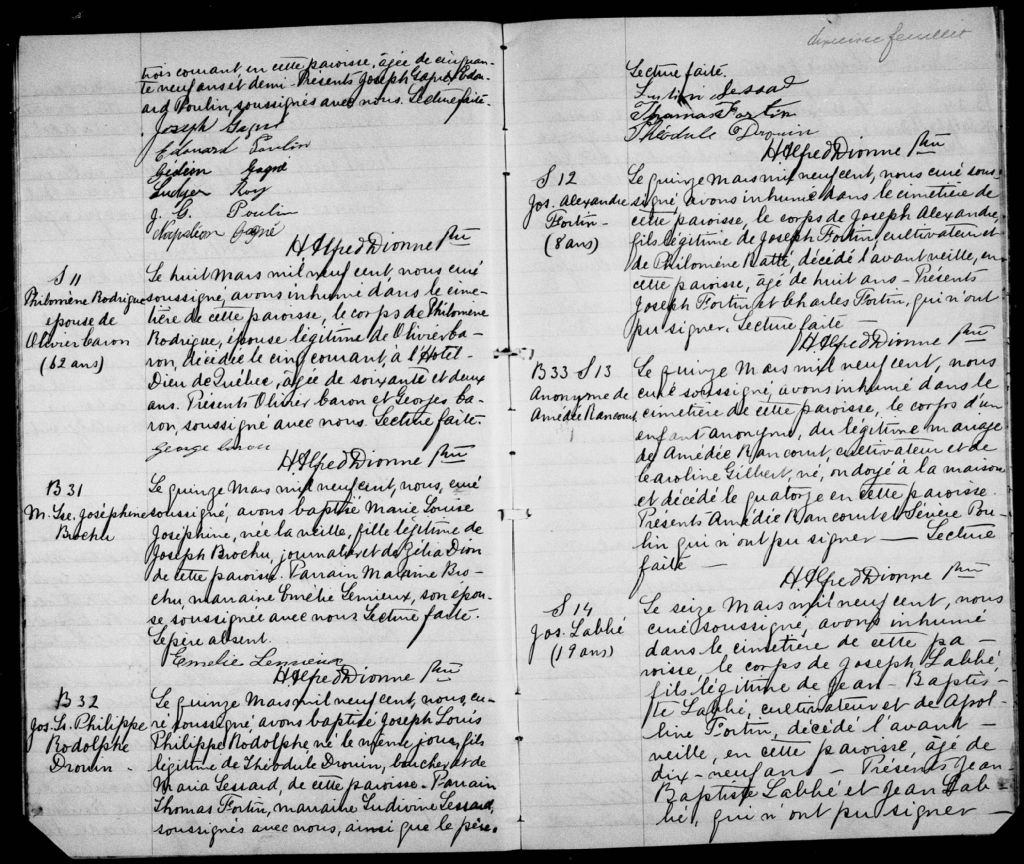 trois courant, en cette paroisse, âgée de cinquan-
te neuf ans et demi. Présents Joseph Gagné, Edou-
ard Poulin, soussignés avec nous. Lecture faite.
Joseph Gagné
Edouard Poulin
Gédéon Gagné
Ludger Roy
J. C. Poulin
Napoléon Gagné
H Alfred Dionne Ptre
S 11
Philomène Rodrigue
épouse de
Olivier Caron
(62 ans)
Le huit Mars mil neuf cent nous curé
soussigné, avons inhumé dans le cime-
tière de cette paroisse, le corps de Philomène
Rodrigue, épouse légitime de Olivier Ca-
ron, décédée le cinq courant, à l'Hotel-
Dieu de Québec, âgée de soixante et deux
ans. Présents Olivier Caron et Georges Ca-
ron, soussigné avec nous. Lecture faite.
George Caron
H Alfred Dionne Ptre
B 31
M. Lse. Joséphine
Brochu
Le quinze Mars mil neuf cent, nous, curé
soussigné, avons baptisé Marie Louise
Joséphine, née la veille, fille légitime de
Joseph Brochu, journalier et de Zélia Dion
de cette paroisse. Parrain Maxime Bro-
chu, marraine Emélie Lemieux, son épou-
se, soussignée avec nous Lecture faite.
Le père absent.
Emelie Lemieux
H Alfred Dionne Ptre
B 32
Jos. Ls. Philippe
Rodolphe
Drouin -
Le quinze Mars mil neuf cent, nous, cu-
ré soussigné avons baptisé Joseph Louis
Philippe Rodolphe, né le même jour, fils
légitime de Théodule Drouin, boucher et de
Maria Lessard, de cette paroisse - Parrain
Thomas Fortin, marraine Ludivine Lessard,
soussignés avec nous, ainsi que le père.
feuillet
Lecture faite.
Lessard
Thomas Fortin
Théodule Drouin
H Alfred Dionne Ptre
S 12
Jos. Alexandre
Fortin -
(8 ans)
Le quinze Mars mil neuf cent, nous curé sous-
signé, avons inhumé dans le cimetière de
cette paroisse, le corps de Joseph Alexandre,
fils légitime de Joseph Fortin, cultivateur et
de Philomène Ratté, décédé l'avant veille, en
cette paroisse, âgé de huit ans - Présents
Joseph Fortin et Charles Fortin, qui n'ont
pu signer. Lecture faite -
H Alfred Dionne Ptre
B 33 S 13
Anonyme de
Amédée Rancourt
Le quinze Mars mil neuf cent, nous
curé soussigné, avons inhumé dans le
cimetière de cette paroisse, le corps d'un
enfant anonyme, du légitime mariage
de Amédée Rancourt, cultivateur et de
Caroline Gilbert, né, ondoyé à la maison
et décédé le quatorze en cette paroisse.
Présents Amédée Rancourt et Sévère Pou-
lin qui n'ont pu signer — Lecture
faite -
H Alfred Dionne Ptre
S 14
Jos. Labbé
(19 ans)
Le seize Mars mil neuf cent, nous
curé soussigné, avons inhumé
dans le cimetière de cette pa-
roisse, le corps de Joseph Labbé,
fils légitime de Jean - Baptis-
te Labbé, cultivateur et de Apol-
line Fortin, décédé l'avant -
veille, en cette paroisse, âgé de
dix-neuf ans - Présents Jean-
Baptiste Labbé et Jean Lab-
bé, qui n'ont pu signer -